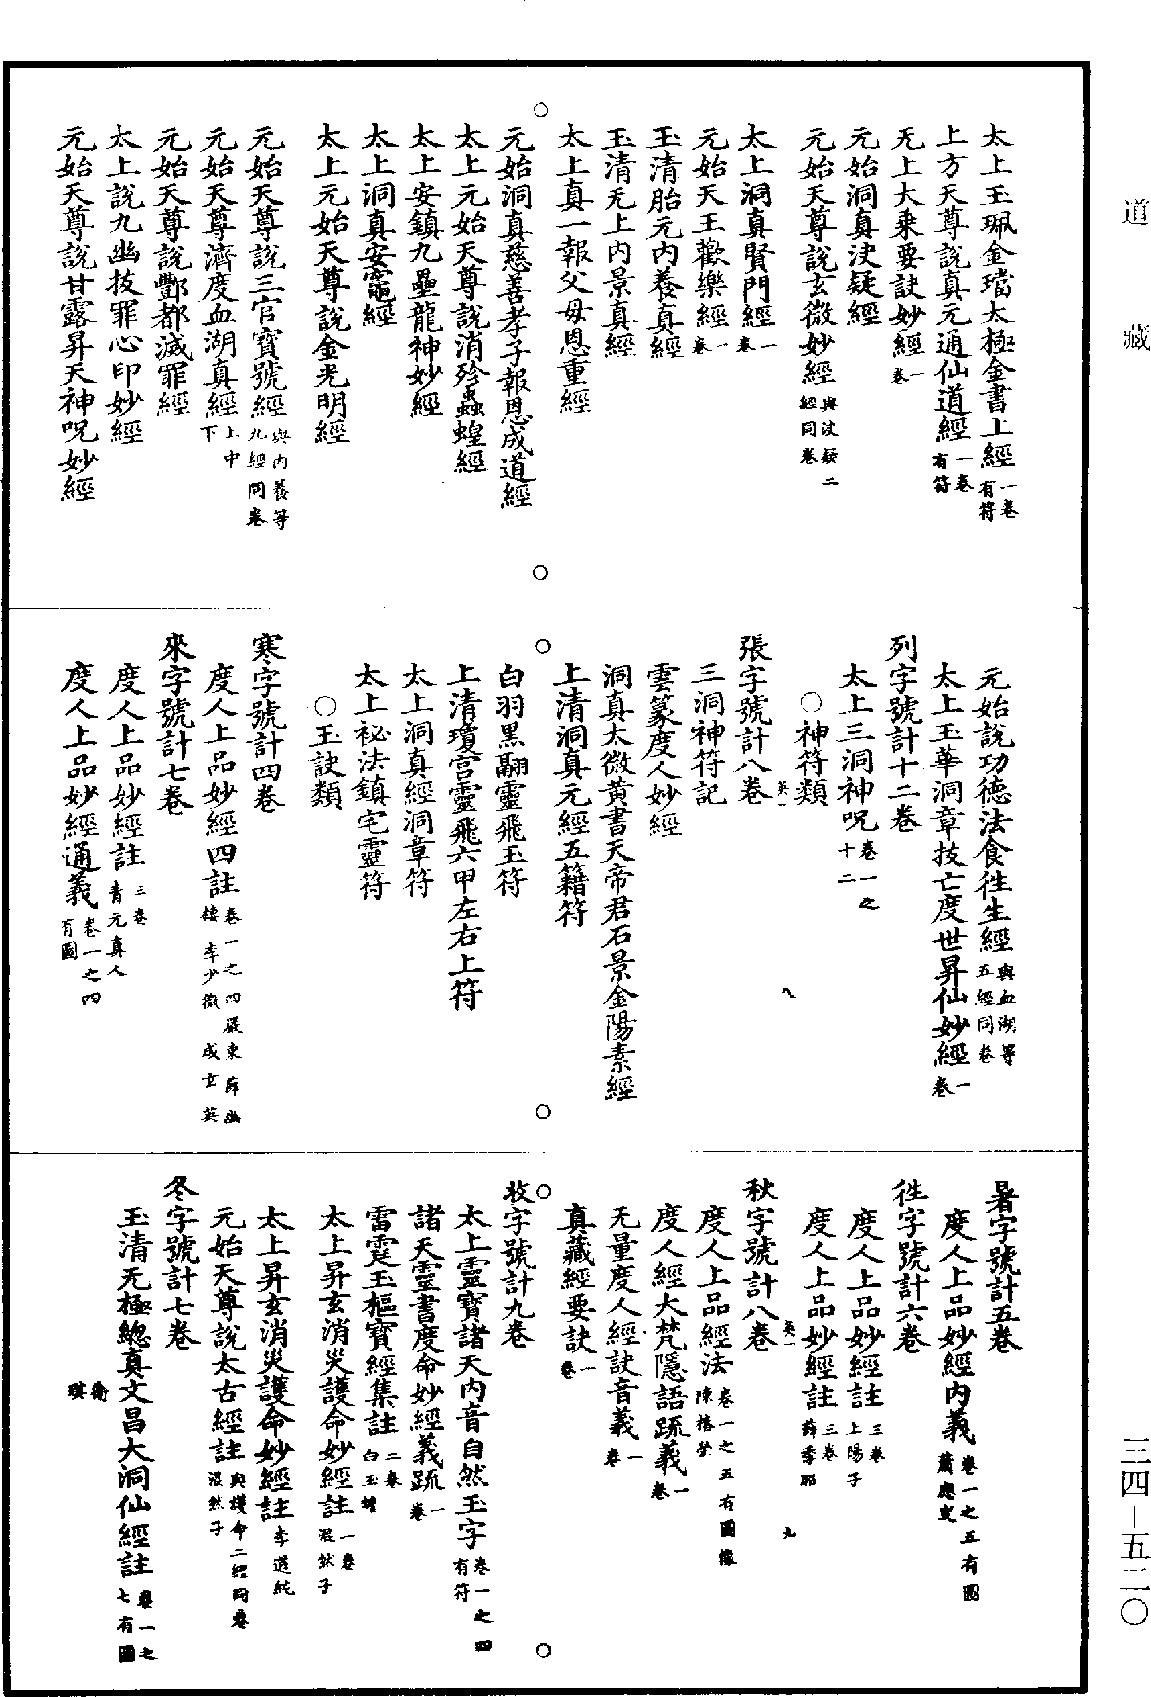 道藏
太上玉珮金璫太極金書上經 一卷有符
上方天尊說真元通仙道經 一卷有符
无上大乘要訣妙經 一卷
元始洞真決疑經
元始天尊說玄微妙經 與決疑二經同卷
太上洞真賢門經 一卷
元始天王歡樂經 一卷
玉清胎元內養真經
玉清无上內景真經
太上真一報父母恩重經
○
元始洞真慈善孝子報恩成道經
太上元始天尊說消殄蟲蝗經
太上安鎮九壘龍神妙經
太上洞真安竈經
太上元始天尊說金光明經
元始天尊說三官寶號經 與內養等九經同卷
元始天尊濟度血湖真經 上中下
元始天尊說酆都滅罪經
太上說九幽拔罪心印妙經
元始天尊說甘露昇天神呪妙經
○
元始說功德法食徃生經 與血湖等五經同卷
太上玉華洞章拔亡度世昇仙妙經 一卷
列字號計十二卷
太上三洞神呪 卷一之十二
○神符類
張字號計八卷
英一 八
三洞神符記
雲篆度人妙經
洞真太微黃書天帝君石景金陽素經
上清洞真元經五籍符
○
白羽黑翮靈飛玉符
上清瓊宮靈飛六甲左右上符
太上洞真經洞章符
太上祕法鎮宅靈符
○玉訣類
寒字號計四卷
度人上品妙經四註 卷一之四嚴東薛幽棲李少微成玄英
來字號計七卷
度人上品妙經註 三卷青元真人
度人上品妙經通義 卷一之四有圖
○
暑字號計五卷
度人上品妙經內義 卷一之五有圖蕭應叟
徃字號計六卷
度人上品妙經註 三卷上陽子
度人上品妙經註 三卷薛季昭
秋字號計八卷
英一 九
度人上品經法 卷一之五有圖像陳椿榮
度人經大梵隱語疏義 一卷
无量度人經訣音義 一卷
真藏經要訣 一卷
○
收字號計九卷
太上靈寶諸天內音自然玉字 卷一之四有符
諸天靈書度命妙經義疏 一卷
雷霆玉樞寶經集註 二卷白玉蟾
太上昇玄消災護命妙經註 一卷混然子
太上昇玄消災護命妙經註 李道純
元始天尊說太古經註 與護命二經同卷混然子
冬字號計七卷
玉清无極總真文昌大洞仙經註 卷一之七有圖
衛琪
○
三四—五二〇